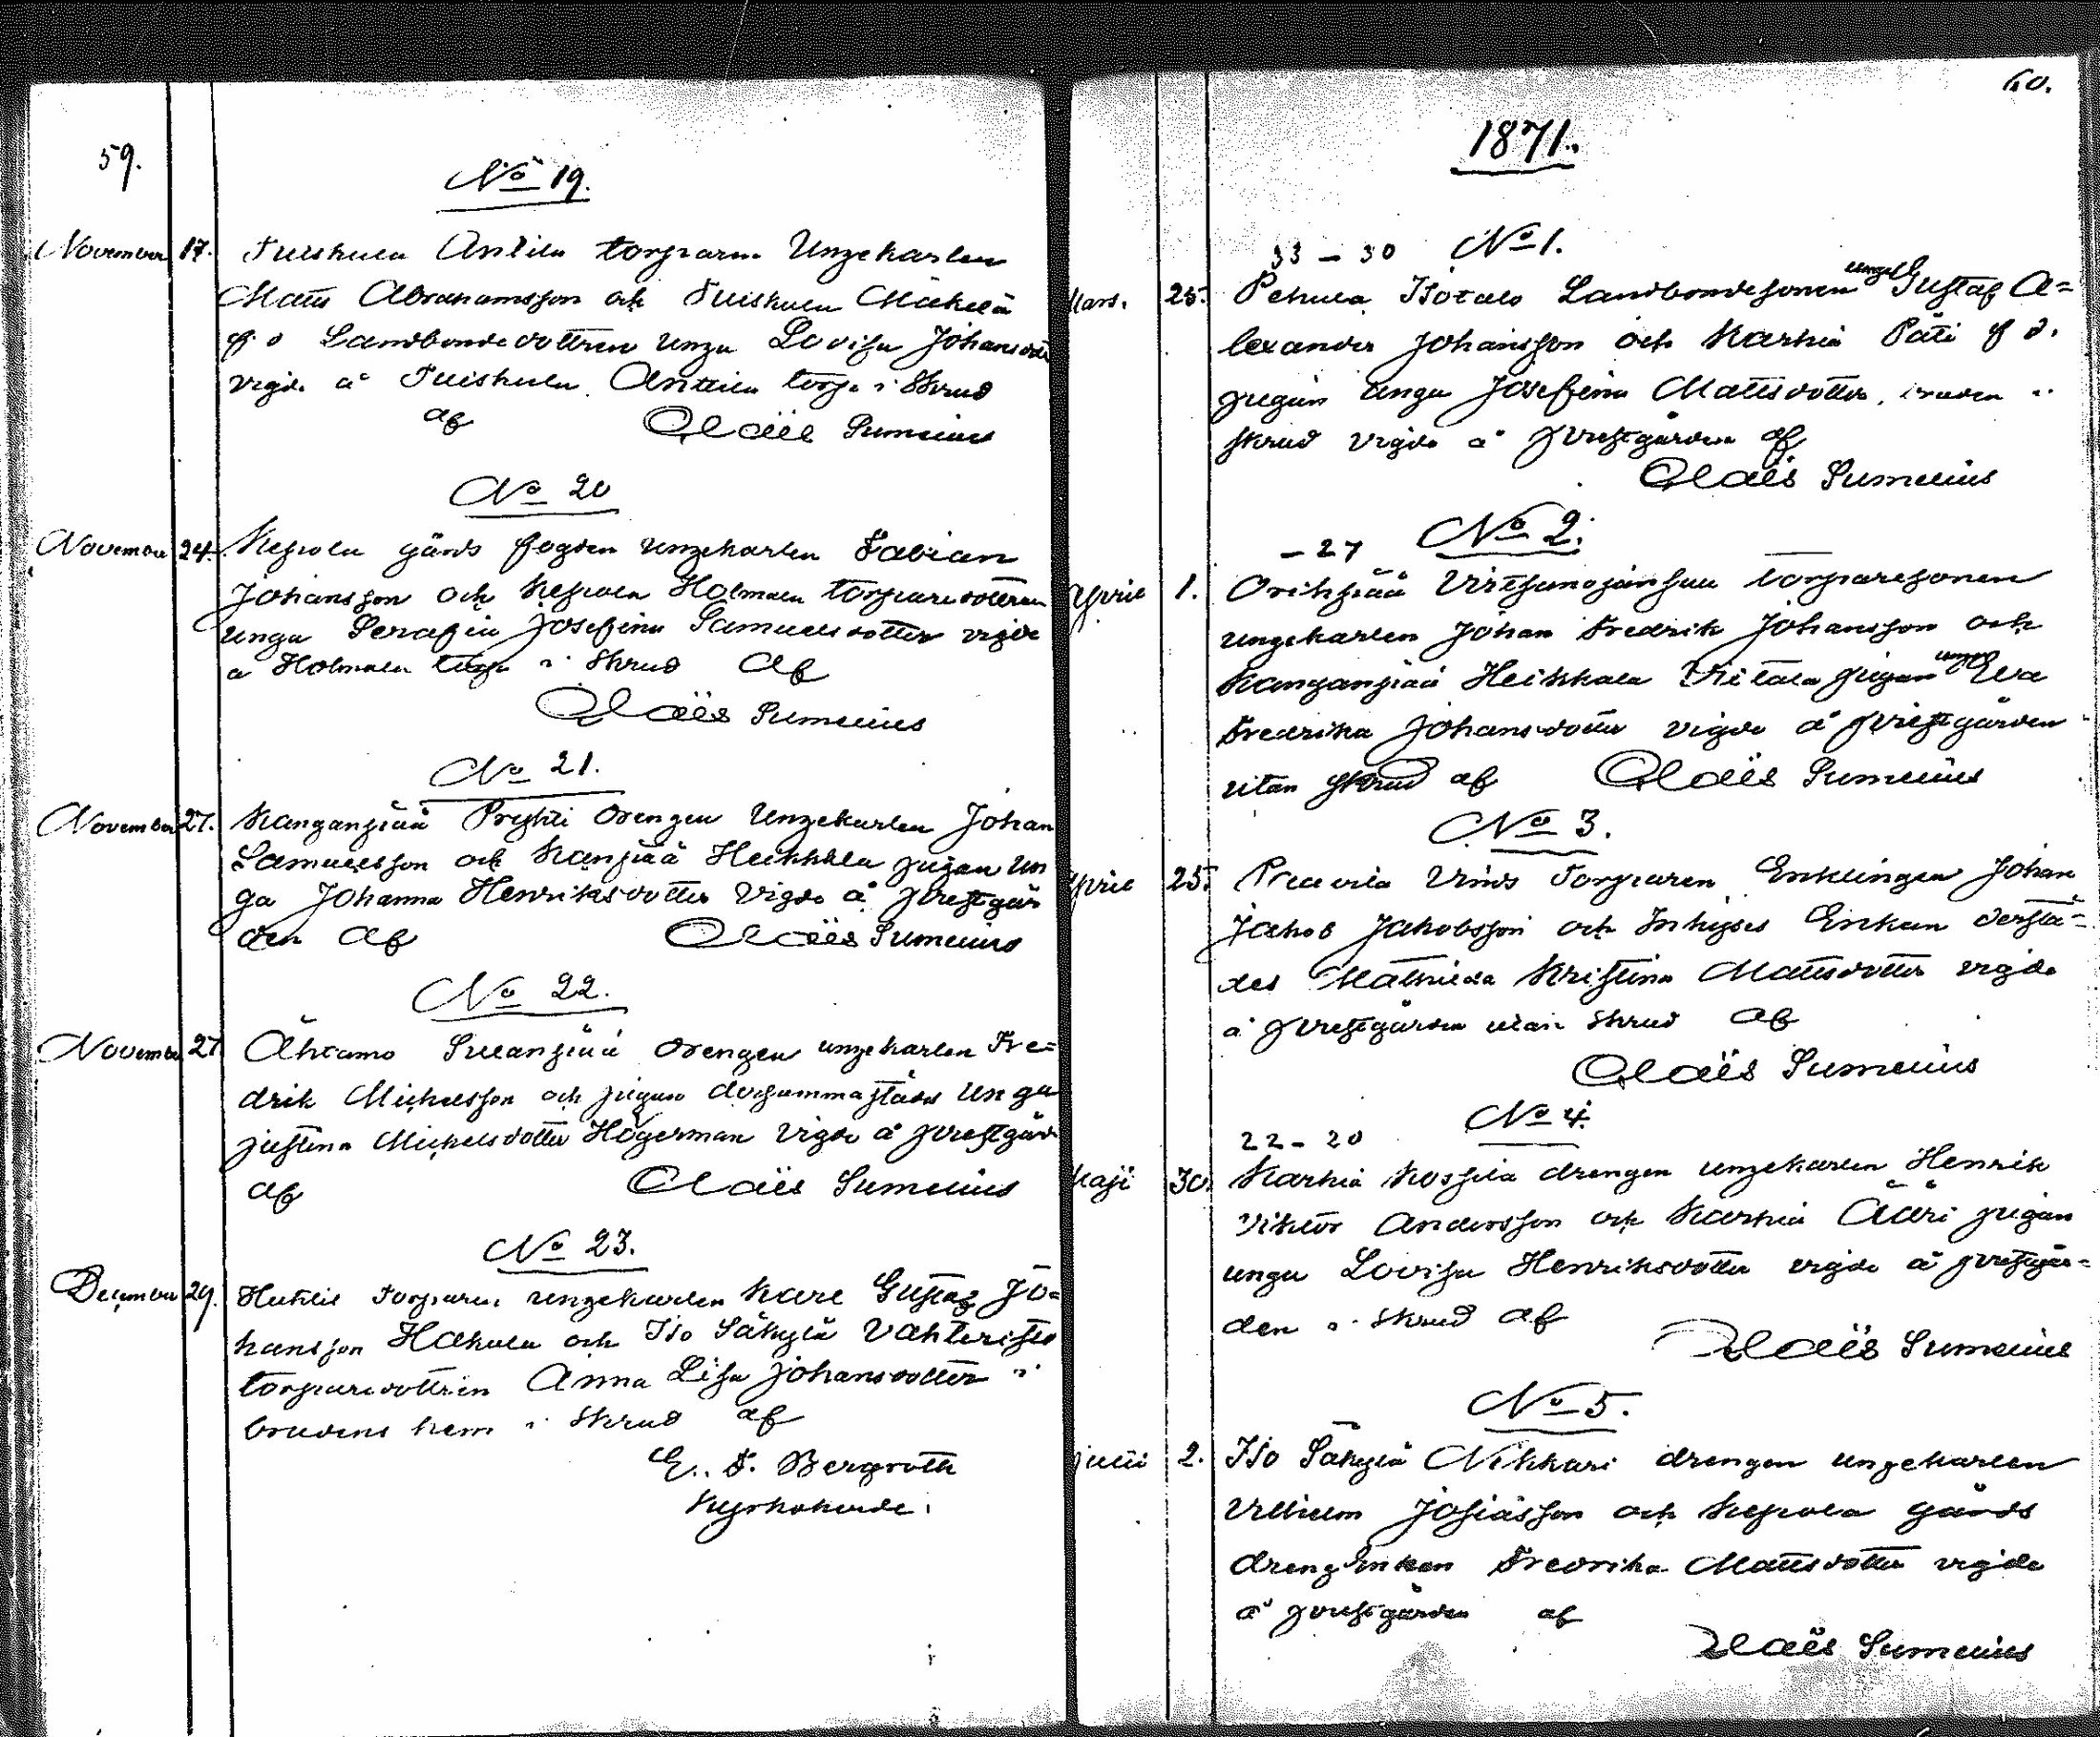 59.
No 19.
November 17. Tuiskula Anttila torparen Ungekarlen
Matts Abrahamsson och Tuiskula Mäkelä
f. d Landbondedottren unga Lovisa Johansdott
vigde å Tuiskula Anttila torp i Skrud
af Claës Sumelius
No 20
November 24. Kepola gårds fogden ungekarlen Fabian
Johansson och Kepola Holman torparedottren
unga Serafia Josefina Samuelsdotter vigde
a Holman torp i Skrud af
Claës Sumelius
No 21.
November 27. Kanganpää Prykti drengen Ungekarlen Johan
Samuelsson och Kanpää Heikkila pigan un
ga Johanna Henriksdotter vigde å prestgår
den af Claës Sumelius
No 22.
November 27 Ähtamo drengen ungekarlen Fre=
drik Michelsson och pigan dersammastädes Unga
Justina Michelsdotter Högerman vigde å prestgård
af Claës Sumelius
No 23.
December 29. Huhtis Torparen ungekarlen Karl Gustaf Jo=
hansson Hakula och Iso Säkylä Vahteristo
torparedottren Anna Lisa Johansdotter i
brudens hem i Skrud af
E. F. Bergroth
Kyrkoherde.
60.
1871.
33 – 30 No 1.
Mars. 25. Pehula Isotalo Landbondesonen ungk Gustaf A=
lexander Johansson och Karhia Päti f d.
pigan unga Josefina Mattsdotter, bruden i
skrud vigde å prestgården af
Claës Sumelius
– 27 No 2.
April 1. Orihpää torparesonen
ungekarlen Johan Fredrik Johansson och
Kanganpää Heikkala Vitala pigan unga Eva
Fredrika Johansdotter vigde å prestgården
utan skrud af Claës Sumelius
No 3.
April 25. Torparen Enklingen Johan
Jakob Jakobsson och Inhyses Enkan derstä=
des Mathilda Kristina Mattsdotter vigde
å prestgården utan skrud af
Claës Sumelius
22 – 20 No 4.
Maji 30. Karhia Kossila drengen ungekarlen Henrik
Viktor Andersson och Karhia Ääri pigan
unga Lovisa Henriksdotter vigde å prestgår=
den i skrud af
Claës Sumelius
No 5.
Juni 2. Iso Säkylä Nikkari drengen ungekarlen
Vilhelm Josiasson och Kepola gårds
drengEnkan Fredrika Mattsdotter vigde
å prestgården af
Claës Sumelius